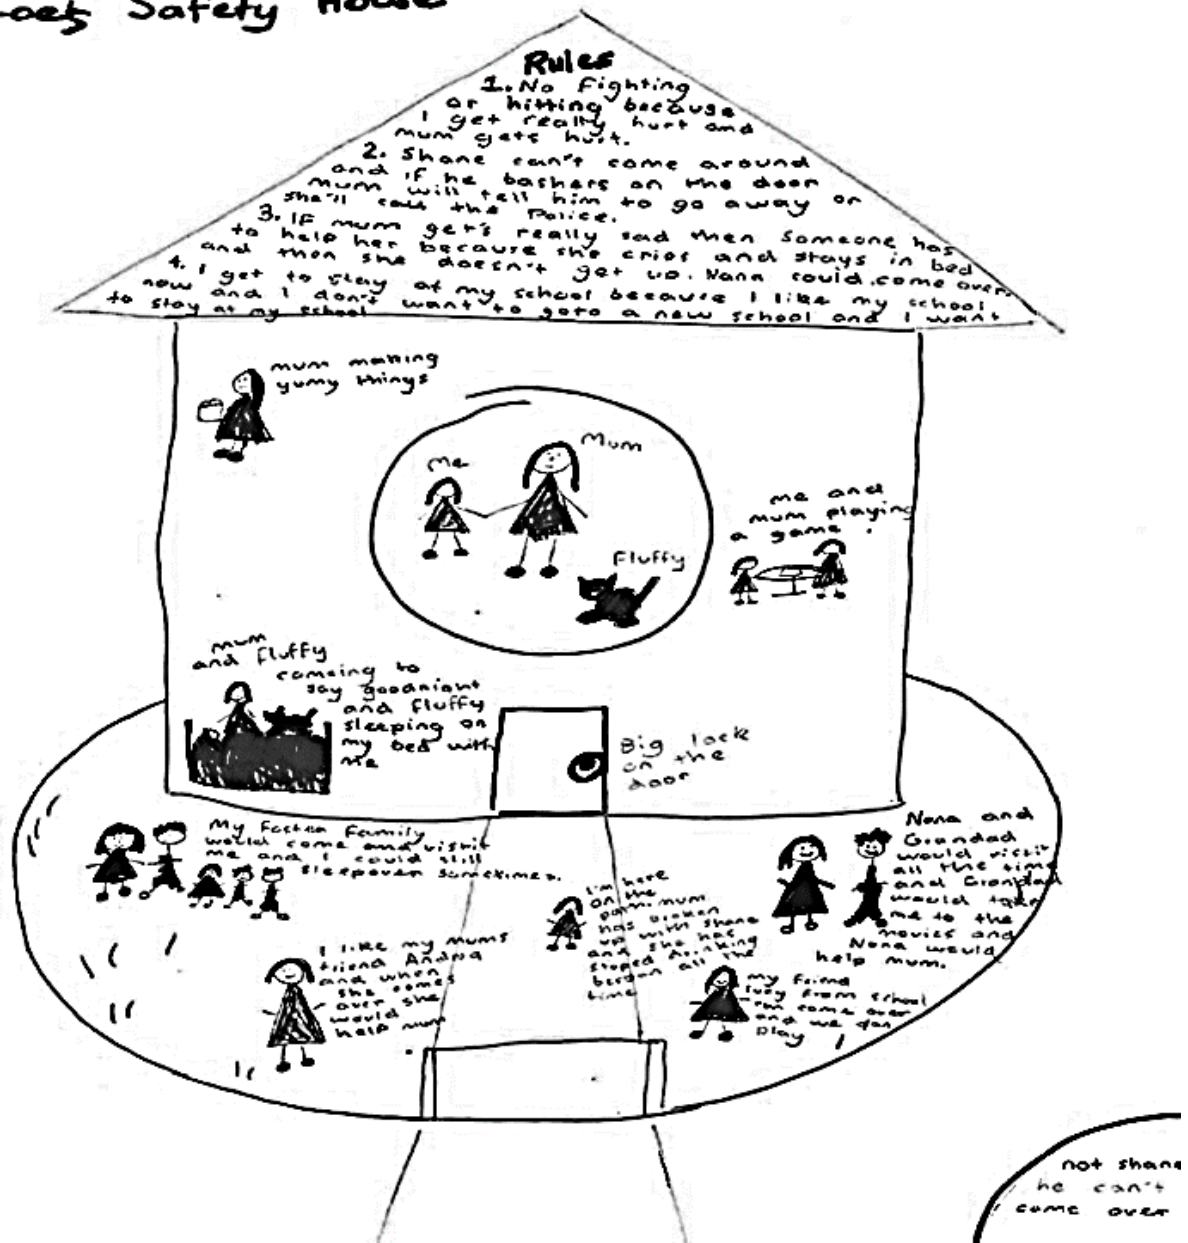 Safety House
Rules
1. No Fighting
or hitting because
I get really hurt and
mum gets hurt.
2. Shane can't come around
and if he bashers on the door
mum will tell him to go away or
she'll call the Police.
3. If mum get's really sad then someone has
to help her because she cries and stays in bed
and then she doesn't get up. Nana could come over.
4. I get to stay at my school because I like my school
now and I don't want to goto a new school and I want
to stay at my school
mum making
yumy things
Me
Mum
Fluffy
me and
mum playing
a game.
mum
and fluffy
comeing to
say goodnight
and fluffy
sleeping on
my bed with
me
Big lock
on the
door
My Foster Family
would come and visit
me and I could still
sleepover sometimes.
Nana and
Grandad
would visit
all the time
and Grandad
would take
me to the
movies and
Nana would
help mum.
I'm here
on the
path. mum
has broken
up with Shane
and she has
stoped drinking
all the
time
I like my mums
friend Andrea
and when
she comes
over she
would
help mum
my friend
lucy from school
can come over
and we can
play
not shane
he can't
come over